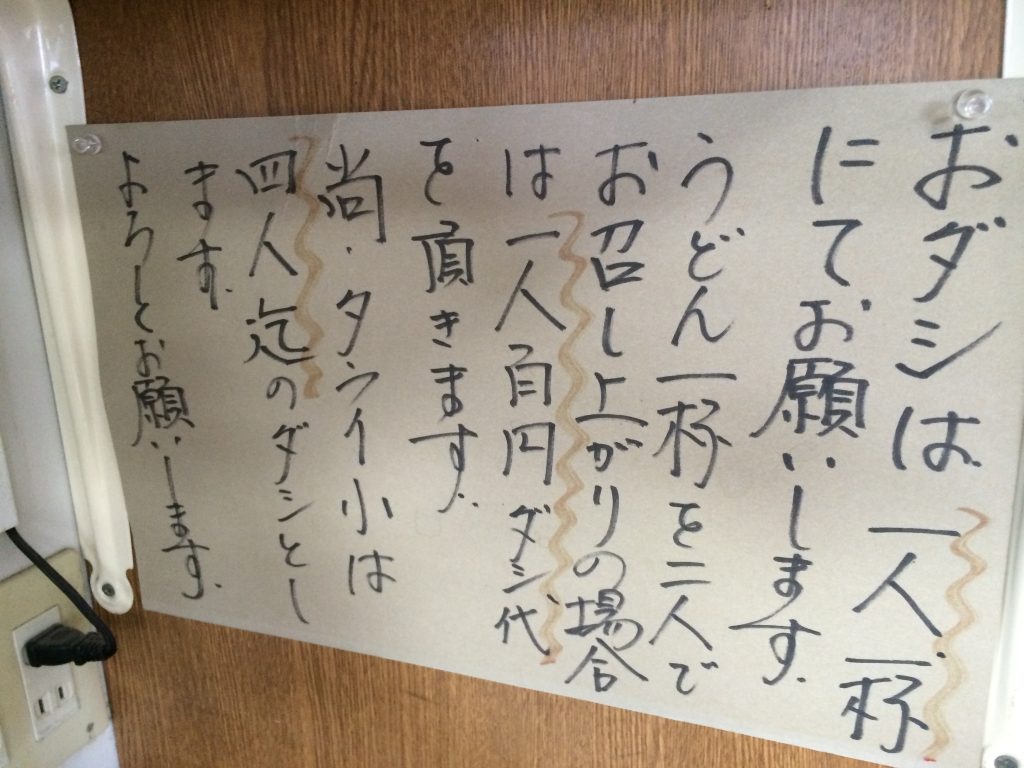 おダシは一人一杯
にてお願いします。
うどん一杯を二人で
お召し上がりの場合
は一人百円ダシ代
を頂きます。
尚・タライ小は
四人迄のダシとし
ます。
よろしくお願いします。